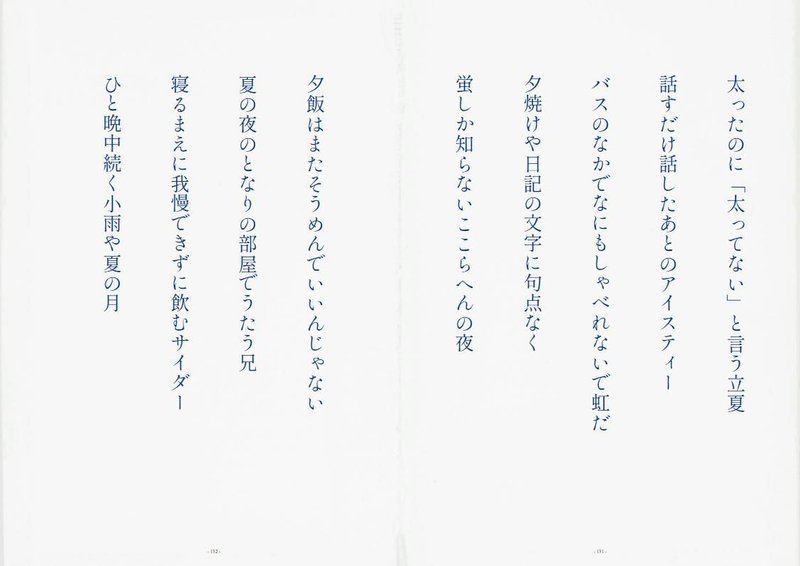 太ったのに「太ってない」と言う立夏
話すだけ話したあとのアイスティー
バスのなかでなにもしゃべれないで虹だ
夕焼けや日記の文字に句点なく
蛍しか知らないここらへんの夜
- 151 -
夕飯はまたそうめんでいいんじゃない
夏の夜のとなりの部屋でうたう兄
寝るまえに我慢できずに飲むサイダー
ひと晩中続く小雨や夏の月
- 152 -